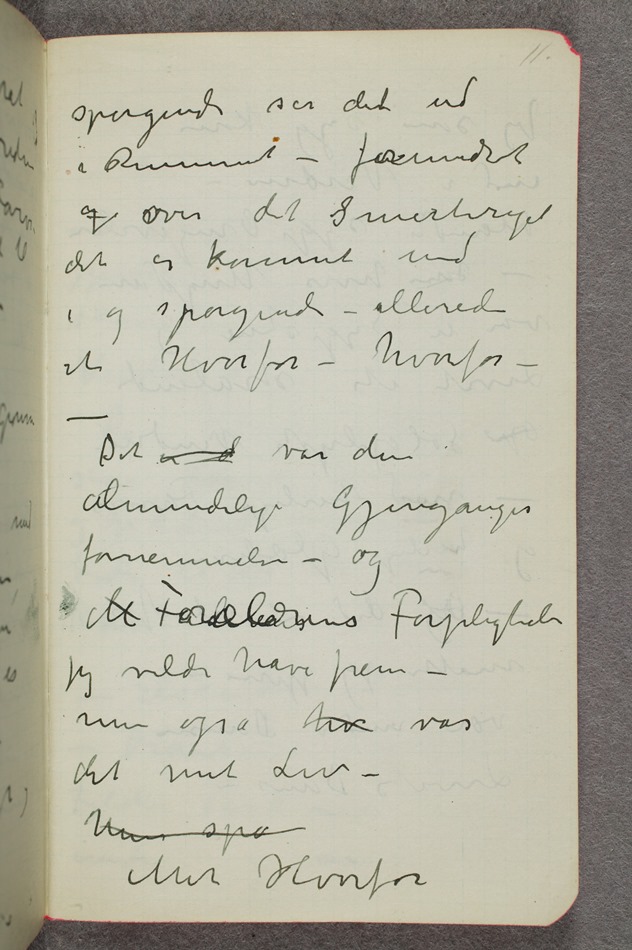 11.
spørgende ser det ud
i Rummet – forundret
og over det Smertersrige
det er kommet ind
i og spørgende – allerede
et Hvorfor – hvorfor –
—
Det var den
almindelige Gjenganger
fornemmelse – og
Forældrerens Forpligtelse
jeg vilde have frem –
men også hvo var
det mit Liv –
Men spø
Mit Hvorfor